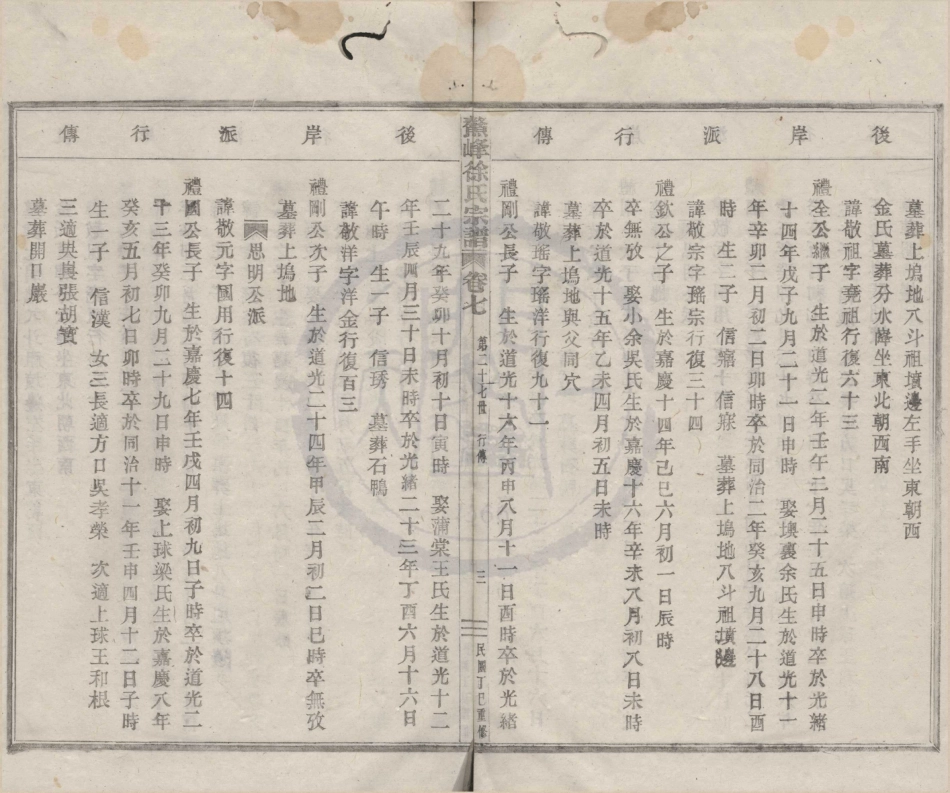 後岸派行傳
墓葬上塢地八斗祖墳邊左手坐東朝西
金氏墓葬分水嶺坐東北朝西南
諱敬祖字堯祖行復六十三
禮全公繼子 生於道光二年壬午三月二十五日申時卒於光緒
十四年戊子九月二十一日申時 娶墺裏余氏生於道光十一
年辛卯二月初二日卯時卒於同治二年癸亥九月二十八日酉
時 生二子 信寤 信寐 墓葬上塢地八斗祖墳邊
諱敬宗字瑤宗行復三十四
禮欽公之子 生於嘉慶十四年己巳六月初一日辰時
卒無攷 娶小余吳氏生於嘉慶十六年辛未八月初八日未時
卒於道光十五年乙未四月初五日未時
墓葬上塢地與父同穴
諱敬瑤字瑤洋行復九十二
禮剛公長子 生於道光十六年丙申八月十一日酉時卒於光緒
鰲峰徐氏宗譜 卷七 第二十七世 行傳 三 民國丁巳重修
後岸派行傳
二十九年癸卯十月初十日寅時 娶蒲棠王氏生於道光十二
年壬辰四月三十日未時卒於光緒二十三年丁酉六月十六日
午時 生一子 信琇 墓葬石鴨
諱敬洋字洋金行復百三
禮剛公次子 生於道光二十四年甲辰二月初二日巳時卒無攷
墓葬上塢地
思明公派
諱敬元字國用行復十四
禮國公長子 生於嘉慶七年壬戌四月初九日子時卒於道光二
十三年癸卯九月二十九日申時 娶上球梁氏生於嘉慶八年
癸亥五月初七日卯時卒於同治十一年壬申四月十二日子時
生一子 信漢 女三長適方口吳孝榮 次適上球王和根
三適吳㠘張胡簣
墓葬開口巖